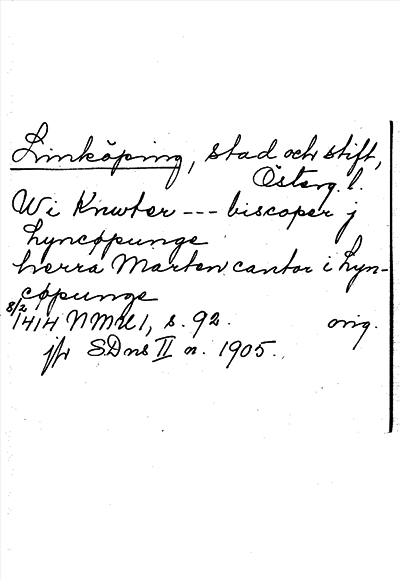 Linköping, stad och stift,
Österg. l.
Wi Knwter --- biscoper j
Lyncøpunge
herra Marten cantor i Lyn-
cøpunge
8/2 1414 NMU 1, s. 92. orig.
jfr SDns II n. 1905.